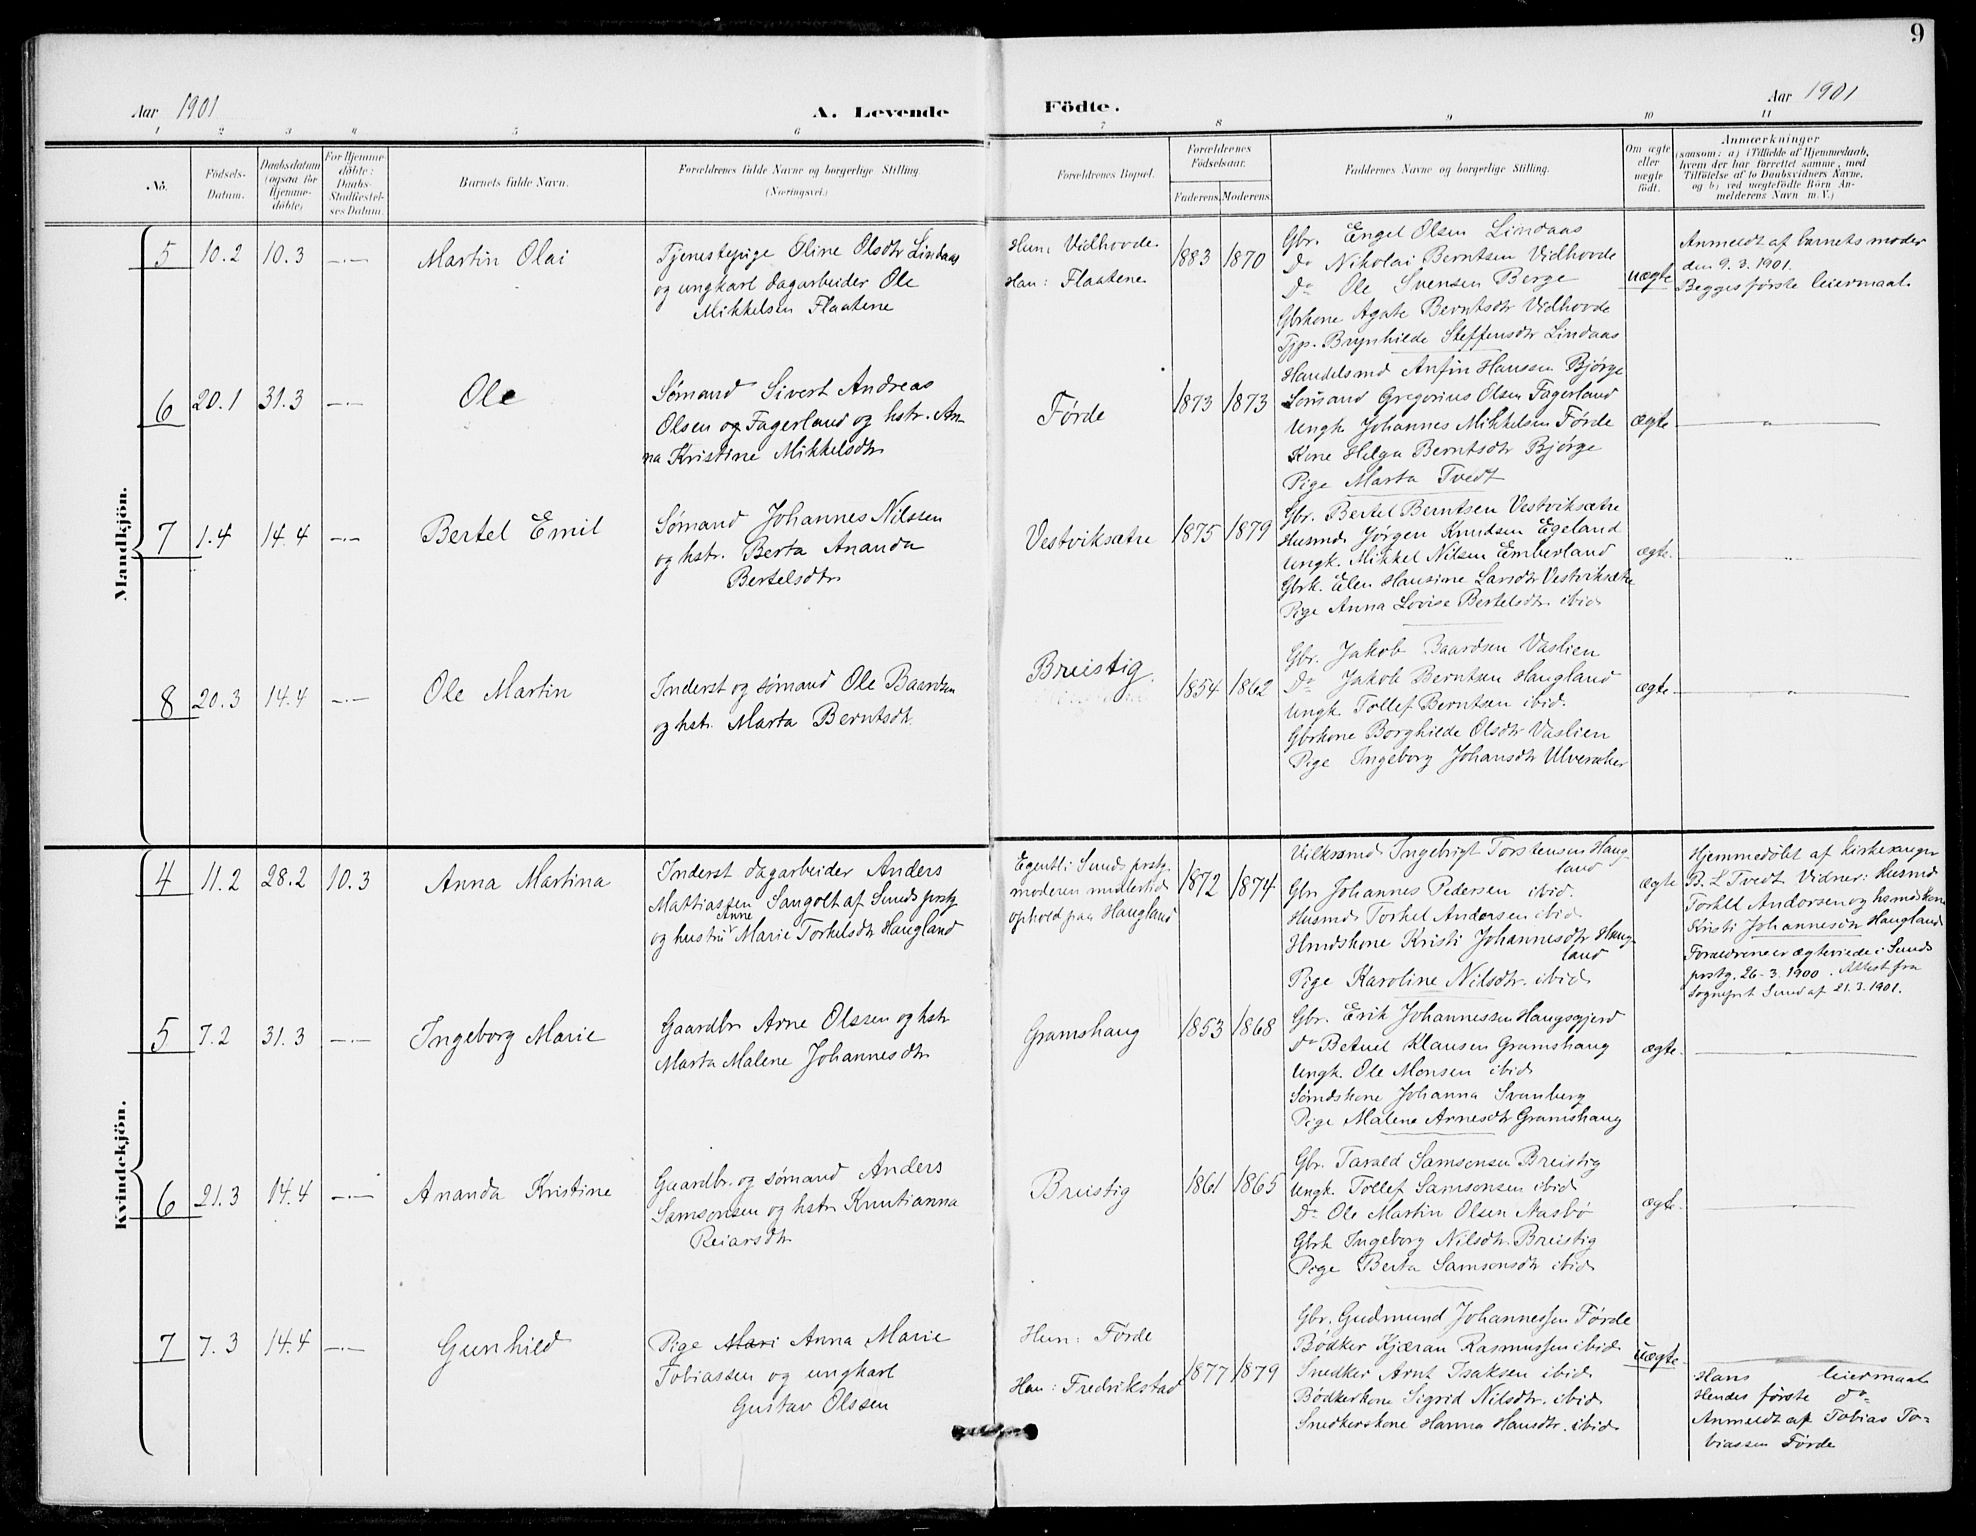 9
Aar 1901
A. Levende
Födte.
Aar 1901
1 2 3 4 5 6 7 8 9 10 11
No.
Födsels-
Datum.
Daabsdatum
(ogsaa for
Hjemme-
døbte)
For Hjemme-
døbte:
Daabs-
Stadfæstel-
ses Datum
Barnets fulde Navn.
Forældrenes fulde Navne og borgerlige Stilling.
(Næringsvei.)
Forældrenes Bopæl.
Forældrenes
Födselsaar.
Faderens. Moderens.
Faddernes Navne og borgerlige Stilling.
Om ægte
eller
uægte
födt.
Anmærkninger
(saasom: a) i Tilfælde af Hjemmedaab,
hvem der har forrettet samme, med
Tilföielse af to Daabsvidners Navne,
og b) ved uægtefödte Börn An-
melderens Navn m. V.)
Mandkjön.
5 10.2 10.3 -.-
Martin Olai
Tjenestepige Oline Olsdtr Lindaas
og ungkarl dagarbeider Ole
Mikkelsen Flaatene
Hun: Vidhovde
Han: Flaatene
1883 1870
Gbr. Engel Olsen Lindaas
Do Nikolai Berntsen Vidhovde
Do Ole Svensen Berge
Gbrkone Agate Berntsdtr Vidhovde
Tjp. Brynhilde Steffensdtr Lindaas
uægte
Anmeldt af barnets moder
den 9.3.1901.
Begges første leiermaal.
6 20.1 31.3 -.-
Ole
Sømand Sivert Andreas
Olsen og Fagerland og hstr. An-
na Kristine Mikkelsdtr
Førde
1873 1873
Handelsmd Anfin Hanssen Bjørge
Sømand Gregorius Olsen Fagerland
Ungk. Johannes Mikkelsen Førde
Kone Helga Berntsdtr Bjørge
Pige Marta Tvedt
ægte
7 1.4 14.4 -.-
Bertel Emil
Sømand Johannes Nilssen
og hstr. Berta Ananda
Bertelsdtr
Vestviksætre
1875 1879
Gbr. Bertel Berntsen Vestviksætre
Husmd Jørgen Knudsen Egeland
Ungk. Mikkel Nilsen Emberland
Gbrk. Elen Hansine Larsdtr Vestviksætre
Pige Anna Lovise Bertelsdtr. ibid
ægte.
8 20.3 14.4 -.-
Ole Martin
Inderst og sømand Ole Baardsen
og hstr. Marta Berntsdtr
Breistig.
1854 1862
Gbr. Jakob Baardsen Vaslien
Do Jakob Berntsen Haugland
Ungk. Tollef Berntsen ibid.
Gbrkone Borghilde Olsdtr Vaslien
Pige Ingeborg Johansdtr Ulveraker
ægte
Kvindekjön.
4 11.2 28.2 10.3
Anna Martina
Inderst dagarbeider Anders
Mattiassen Sangolt af Sunds prstg
og hustru Anne Marie Torkelsdtr Haugland
Egentli: Sunds prstg.
moderen midlertid
ophold paa Haugland
1872 1874
Ingebrigt Torstensen Haug-
land
Gbr Johannes Pedersen ibid.
Husmd Torkel Andersen ibid
Hmdskone Kristi Johannesdtr Haug-
land
Pige Karoline Nilsdtr. ibid
ægte
Hjemmedøbt af kirkesanger
B. L Tvedt Vidner: Husmd
Torkel Andersen og hsmdskone
Kristi Johannesdtr Haugland
Forældrene er ægteviede i Sunds
prstg. 26-3.1900. Attest fra
Sogneprst Sund af 21.3.1901.
5 7.2 31.3 -.-
Ingeborg Marie
Gaardbr Arne Olssen og hstr
Marta Malene Johannesdtr
Gramshaug
1853 1868
Gbr. Erik Johannessen Haugsgjerd
Do Betuel Klausen Gramshaug
Ungk. Ole Monsen ibid
Sømdskone Johanna Svanberg
Pige Malene Arnesdtr Gramshaug
ægte.
6 21.3 14.4 -.-
Ananda Kristine
Gaardbr. og sømand Anders
Samsonsen og hstr Knutianna
Reiarsdtr
Breistig
1861 1865
Gbr. Tarald Samsonsen Breistig
Ungk. Tollef Samsonsen ibid
Do Ole Martin Olsen Nasbø
Gbrk Ingeborg Nilsdtr. Breistig
Pige Berta Samsonsdtr ibid
ægte.
7 7.3 14.4 -.-
Gunhild
Pige Mari Anna Marie
Tobiassen og ungkarl
Gustav Olssen
Hun: Førde
Han: Fredrikstad
1877 1879
Gbr. Gudmund Johannessen Førde
Bødker Kjæran Rasmussen ibid
Snedker Arnt Isaksen ibid
Bødkerkone Sigrid Nilsdtr. ibid
Snedkerskone Hanna Hansdtr. ibid
uægte
Hans leiermaal
Hendes første do
Anmeldt af Tobias To-
biassen Førde